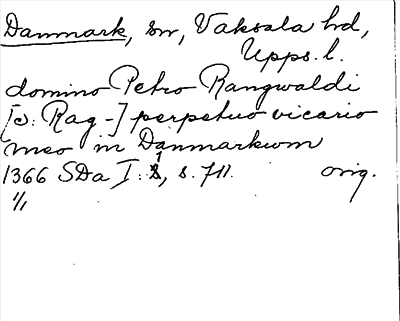 Danmark, sn, Vaksala hd,
Upps. l.
domino Petro Rangwaldi
[o: Rag-] perpetuo vicario
meo in Danmarkum
1366 SDa I: 1, s. 711. orig.
1/1